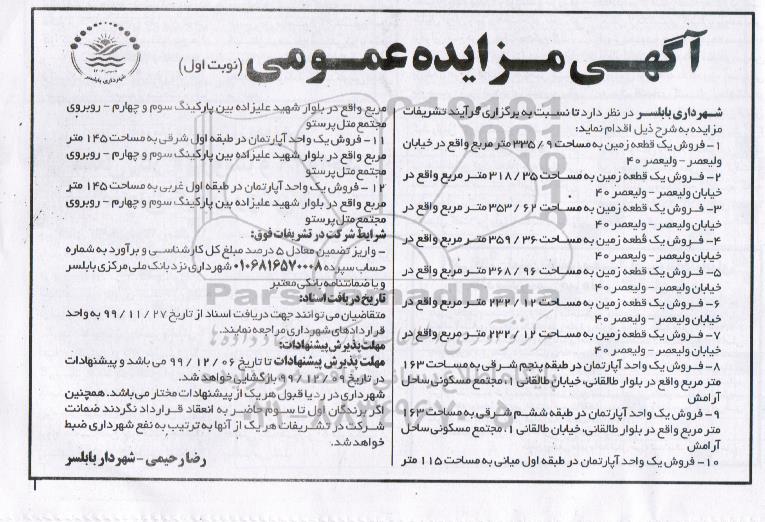 آگهی مزایده عمومی (نوبت اول)
شهرداری بابلسر
شهرداری بابلسر در نظر دارد تا نسبت به برگزاری فرآیند تشریفات
مزایده به شرح ذیل اقدام نماید:
۱- فروش یک قطعه زمین به مساحت ۳۳۵/۹ متر مربع واقع در خیابان
ولیعصر - ولیعصر ۴۰
۲- فروش یک قطعه زمین به مساحت ۳۱۸/۳۵ متر مربع واقع در
خیابان ولیعصر - ولیعصر ۴۰
۳- فروش یک قطعه زمین به مساحت ۳۵۳/۶۲ متر مربع واقع در
خیابان ولیعصر - ولیعصر ۴۰
۴- فروش یک قطعه زمین به مساحت ۳۵۹/۳۶ متر مربع واقع در
خیابان ولیعصر - ولیعصر ۴۰
۵- فروش یک قطعه زمین به مساحت ۳۶۸/۹۶ متر مربع واقع در
خیابان ولیعصر - ولیعصر ۴۰
۶- فروش یک قطعه زمین به مساحت ۲۳۲/۱۲ متر مربع واقع در
خیابان ولیعصر - ولیعصر ۴۰
۷- فروش یک قطعه زمین به مساحت ۲۳۲/۱۲ متر مربع واقع در
خیابان ولیعصر - ولیعصر ۴۰
۸- فروش یک واحد آپارتمان در طبقه پنجم شرقی به مساحت ۱۶۳
متر مربع واقع در بلوار طالقانی، خیابان طالقانی ۱، مجتمع مسکونی ساحل
آرامش
۹- فروش یک واحد آپارتمان در طبقه ششم شرقی به مساحت ۱۶۳
متر مربع واقع در بلوار طالقانی، خیابان طالقانی ۱، مجتمع مسکونی ساحل
آرامش
۱۰- فروش یک واحد آپارتمان در طبقه اول میانی به مساحت ۱۱۵ متر
مربع واقع در بلوار شهید علیزاده بین پارکینگ سوم و چهارم - روبروی
مجتمع متل پرستو
۱۱- فروش یک واحد آپارتمان در طبقه اول شرقی به مساحت ۱۴۵ متر
مربع واقع در بلوار شهید علیزاده بین پارکینگ سوم و چهارم - روبروی
مجتمع متل پرستو
۱۲- فروش یک واحد آپارتمان در طبقه اول غربی به مساحت ۱۴۵ متر
مربع واقع در بلوار شهید علیزاده بین پارکینگ سوم و چهارم - روبروی
مجتمع متل پرستو
شرایط شرکت در تشریفات فوق:
- واریز تضمین معادل ۵ درصد مبلغ کل کارشناسی و برآورد به شماره
حساب سپرده ۰۱۰۶۸۱۶۵۷۰۰۰۸ شهرداری نزد بانک ملی مرکزی بابلسر
و یا ضمانتنامه بانکی معتبر
تاریخ دریافت اسناد:
متقاضیان می توانند جهت دریافت اسناد از تاریخ ۹۹/۱۱/۲۷ به واحد
قراردادهای شهرداری مراجعه نمایند.
مهلت پذیرش پیشنهادات:
مهلت پذیرش پیشنهادات تا تاریخ ۹۹/۱۲/۰۶ می باشد و پیشنهادات
در تاریخ ۹۹/۱۲/۰۹ بازگشایی خواهد شد.
شهرداری در رد یا قبول هر یک از پیشنهادات مختار می باشد. همچنین
اگر برندگان اول تا سوم حاضر به انعقاد قرارداد نگردند ضمانت
شرکت در تشریفات هر یک از آنها به ترتیب به نفع شهرداری ضبط
خواهد شد.
رضا رحیمی - شهردار بابلسر
ParsNamadData